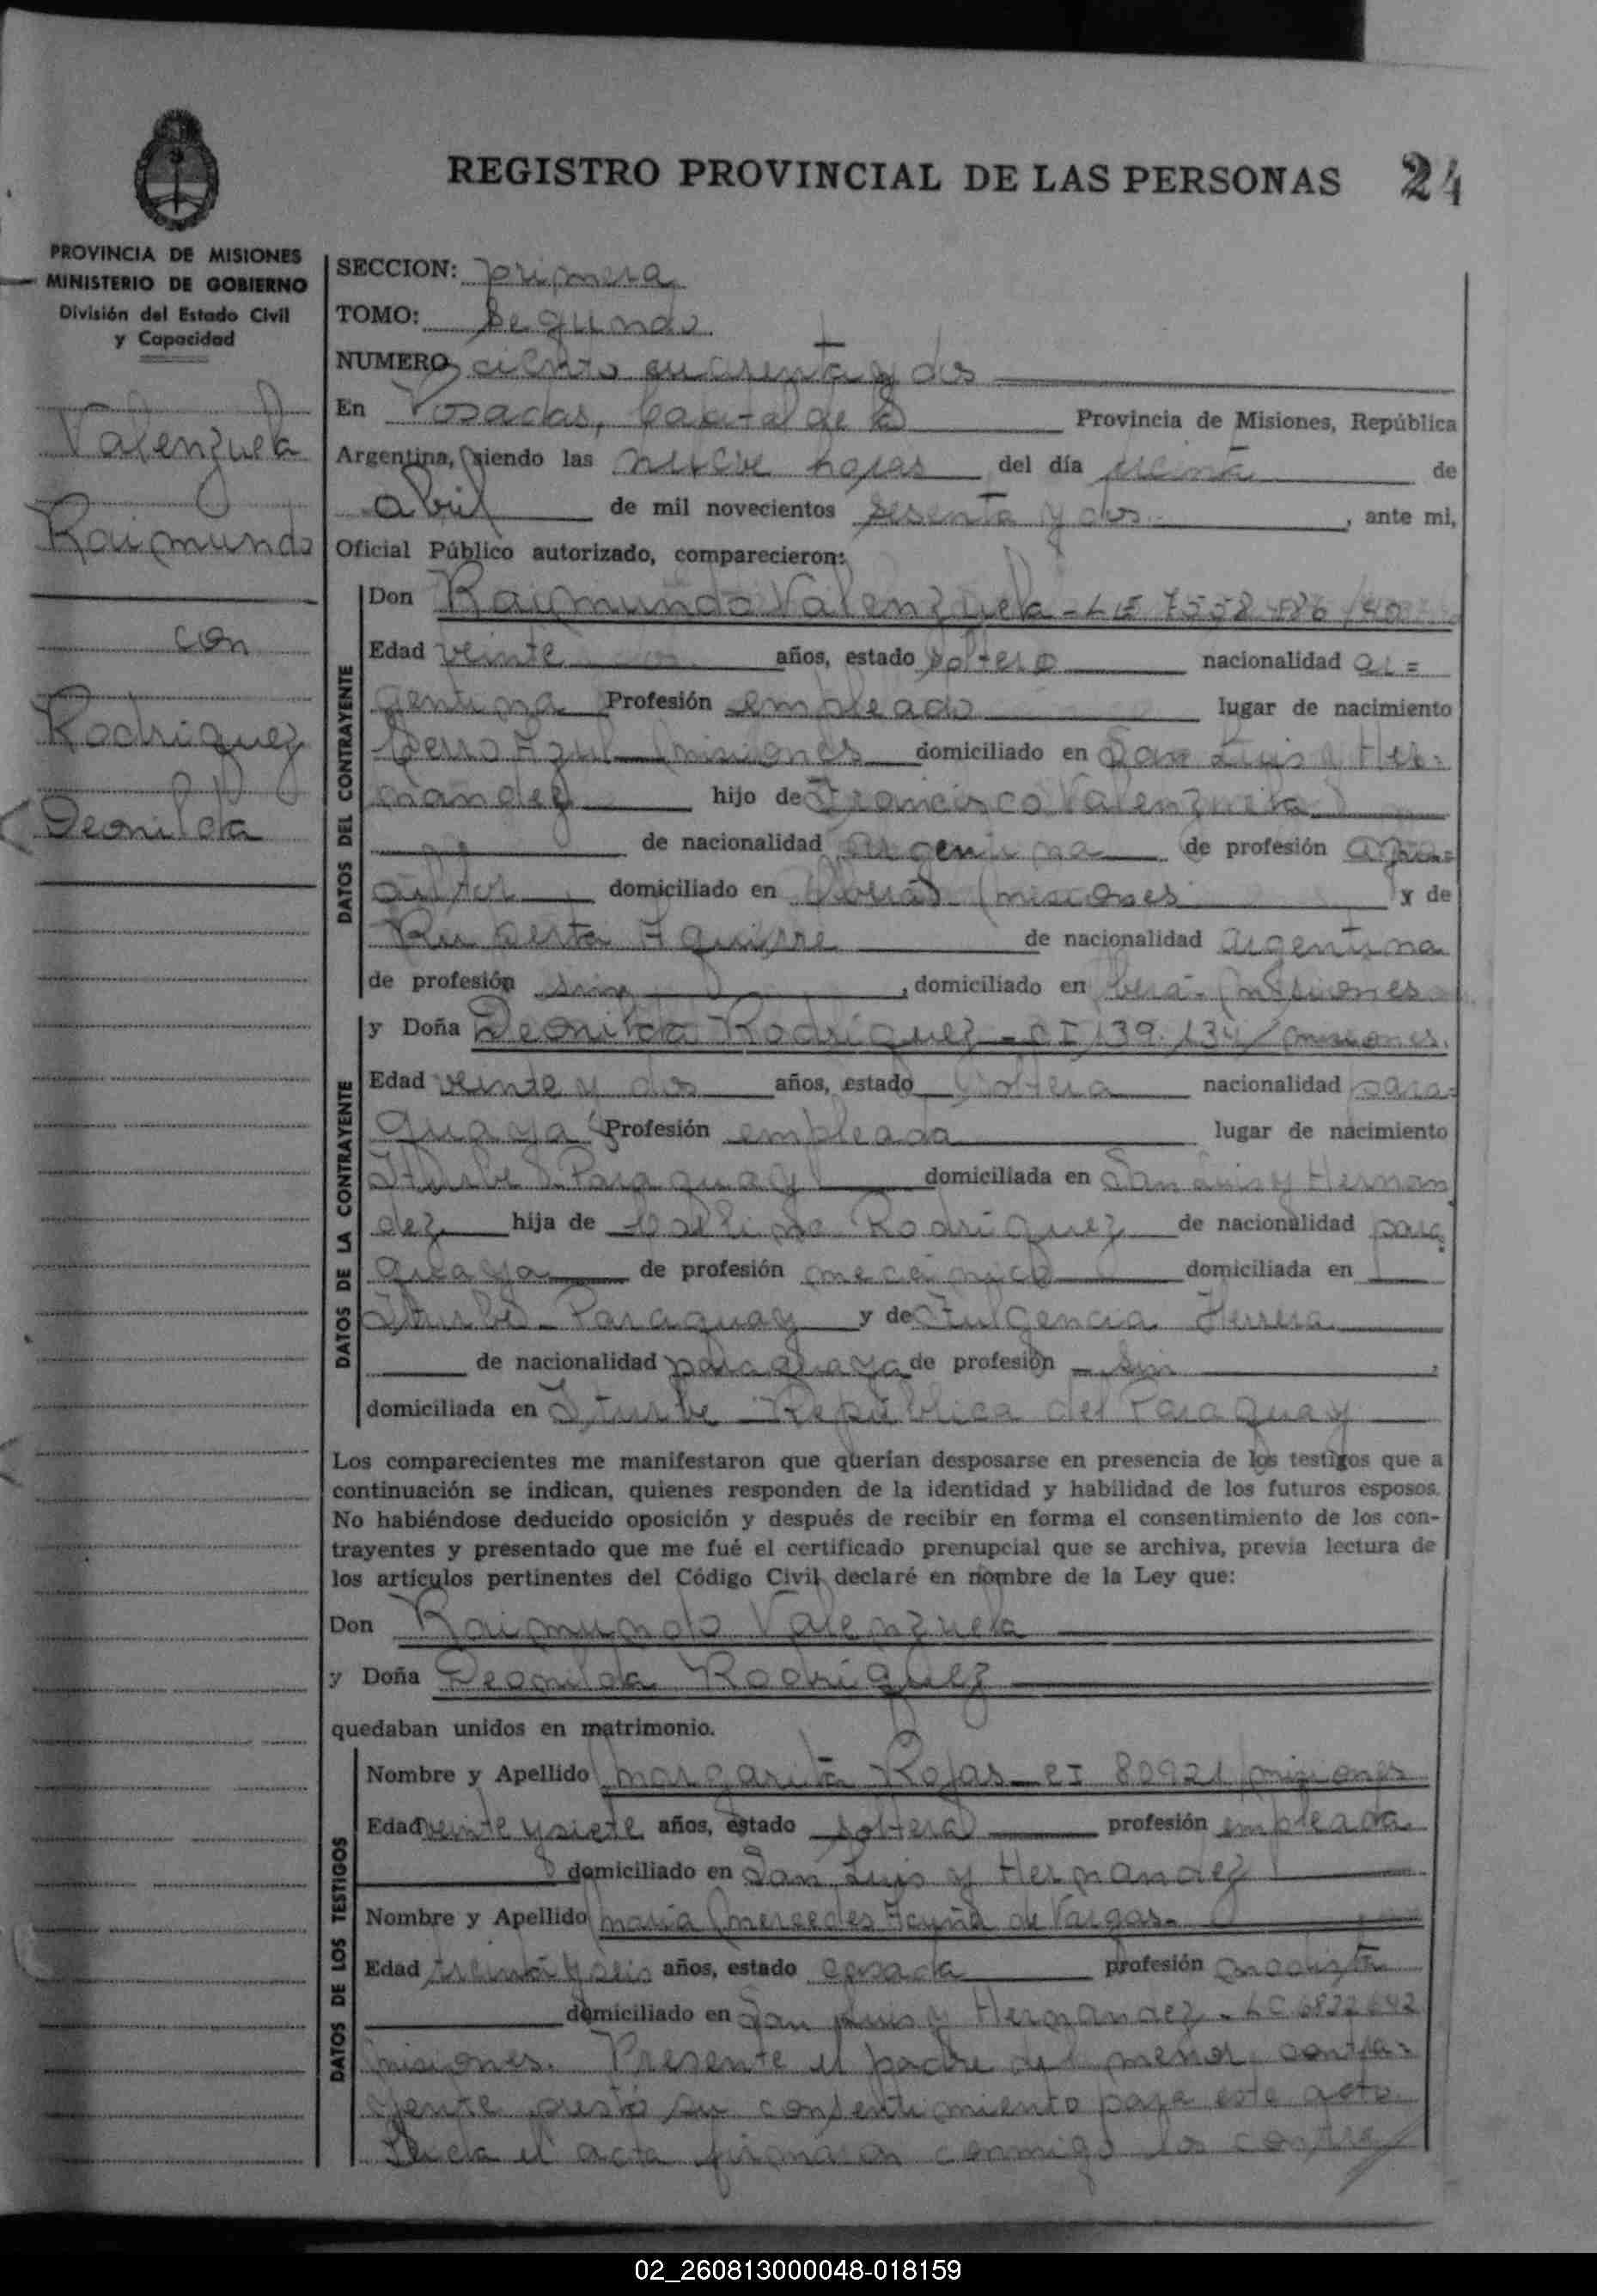 REGISTRO PROVINCIAL DE LAS PERSONAS 24
PROVINCIA DE MISIONES
MINISTERIO DE GOBIERNO
División del Estado Civil
y Capacidad
Valenzuela
Raimundo
con
Rodriguez
Deonilda
SECCION: primera
TOMO: Segundo
NUMERO ciento cuarenta y dos
En Posadas, Capital de la Provincia de Misiones, República
Argentina, siendo las nueve horas del día treinta de
abril de mil novecientos sesenta y dos , ante mi,
Oficial Público autorizado, comparecieron:
DATOS DEL CONTRAYENTE
Don Raimundo Valenzuela - LE 7558
Edad veinte años, estado soltero nacionalidad ar=
gentina Profesión empleado lugar de nacimiento
Cerro Azul Misiones domiciliado en San Luis y Her=
nandez hijo de Francisco Valenzuela
de nacionalidad argentina de profesión agri=
cultor domiciliado en Misiones y de
Ruperta Aguirre de nacionalidad argentina
de profesión sin , domiciliado en Misiones
DATOS DE LA CONTRAYENTE
y Doña Deonilda Rodriguez - CI 139.134/Misiones.
Edad veinte y dos años, estado soltera nacionalidad para=
guaya Profesión empleada lugar de nacimiento
Iturbe Paraguay domiciliada en San Luis y Hernan
dez hija de Rodriguez de nacionalidad para
guaya de profesión mecánico domiciliada en
Iturbe - Paraguay y de Fulgencia Herrera
de nacionalidad paraguaya de profesión - sin ,
domiciliada en Iturbe - República del Paraguay
Los comparecientes me manifestaron que querían desposarse en presencia de los testigos que a
continuación se indican, quienes responden de la identidad y habilidad de los futuros esposos.
No habiéndose deducido oposición y después de recibir en forma el consentimiento de los con-
trayentes y presentado que me fué el certificado prenupcial que se archiva, previa lectura de
los artículos pertinentes del Código Civil, declaré en nombre de la Ley que:
Don Raimundo Valenzuela
y Doña Deonilda Rodriguez
quedaban unidos en matrimonio.
DATOS DE LOS TESTIGOS
Nombre y Apellido Margarita Rojas - CI 80921 Misiones
Edad veinte y siete años, estado soltera profesión empleada
domiciliado en San Luis y Hernandez
Nombre y Apellido Maria Mercedes Acuña de Vargas -
Edad treinta y seis años, estado casada profesión modista
domiciliado en San Luis y Hernandez - LC 6822642
Misiones. Presente el padre del menor contra=
yente prestó su consentimiento para este acto
Leida el acta firmaron conmigo los contra
02_260813000048-018159